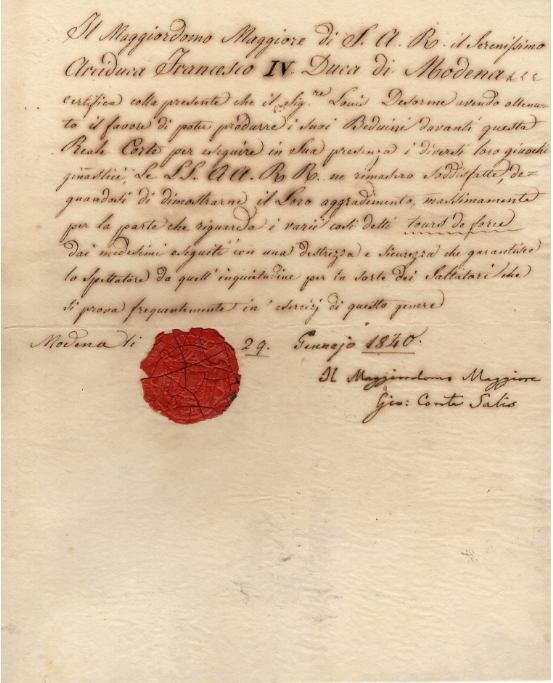 Il Maggiordomo Maggiore di S. A. R. il Serenissimo
Arciduca Francesco IV. Duca di Modena &. &. &.
certifica colla presente che il Sig.re Louis Desorme avendo ottenu-
to il favore di poter produrre i suoi Beduini davanti questa
Reale Corte per eseguire in Sua presenza i diversi loro giuochi
ginastici, Le LL. AA. R R. ne rimasero Soddisfatte, de=
gnandosi di dimostrarne il Loro aggradimento, massimamente
per la parte che riguarda i varii così detti tours de force
dai medesimi eseguiti con una destrezza e Sicurezza che garantisce
lo Spettatore da quell' inquietudine per la sorte dei Saltatori che
si prova frequentemente in esercizj di questo genere
Modena li 29. Gennajo 1840.
Il Maggiordomo Maggiore
Gio: Conte Salis